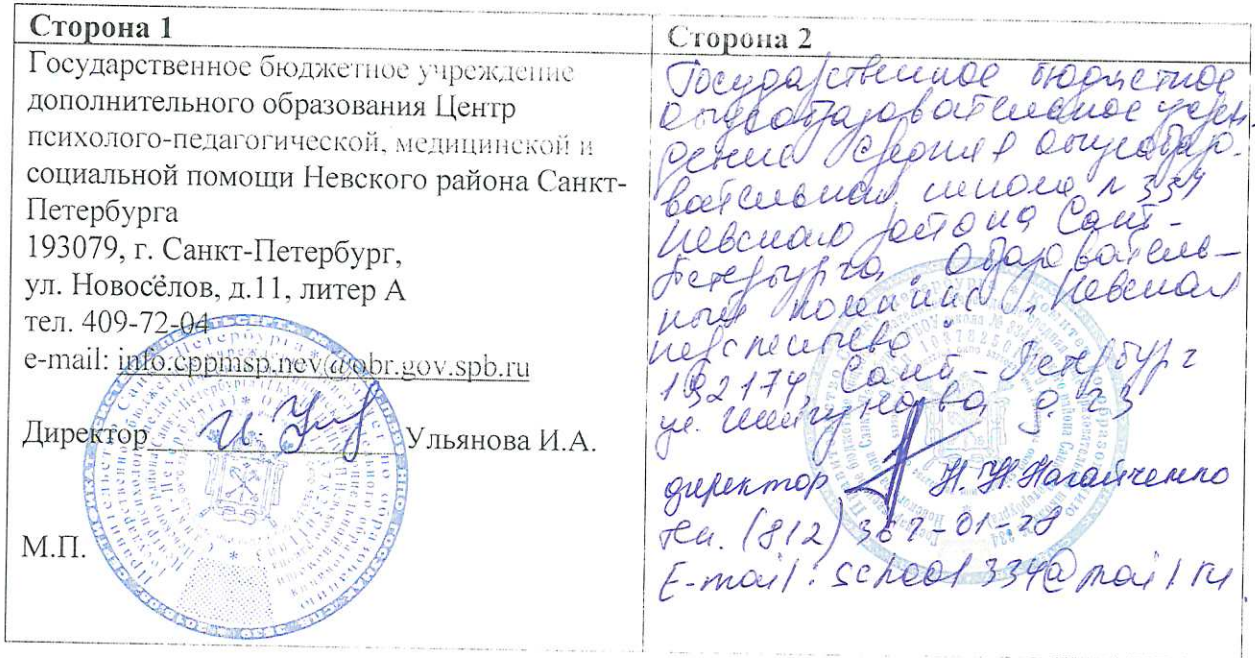 Сторона 1
Государственное бюджетное учреждение
дополнительного образования Центр
психолого-педагогической, медицинской и
социальной помощи Невского района Санкт-
Петербурга
193079, г. Санкт-Петербург,
ул. Новосёлов, д.11, литер А
тел. 409-72-04
e-mail: info.cppmsp.nev@obr.gov.spb.ru
Директор Ульянова И.А.
М.П.
Сторона 2
Государственное бюджетное
общеобразовательное учреж
дение средняя общеобразо-
вательная школа № 334
Невского района Санкт-
Петербурга. Образователь-
ный комплекс "Невская
перспектива"
192174, Санкт-Петербург
ул. Шелгунова, д. 23
директор Н.Н. Нагайченко
тел. (812) 362-01-28
E-mail: school334@mail.ru